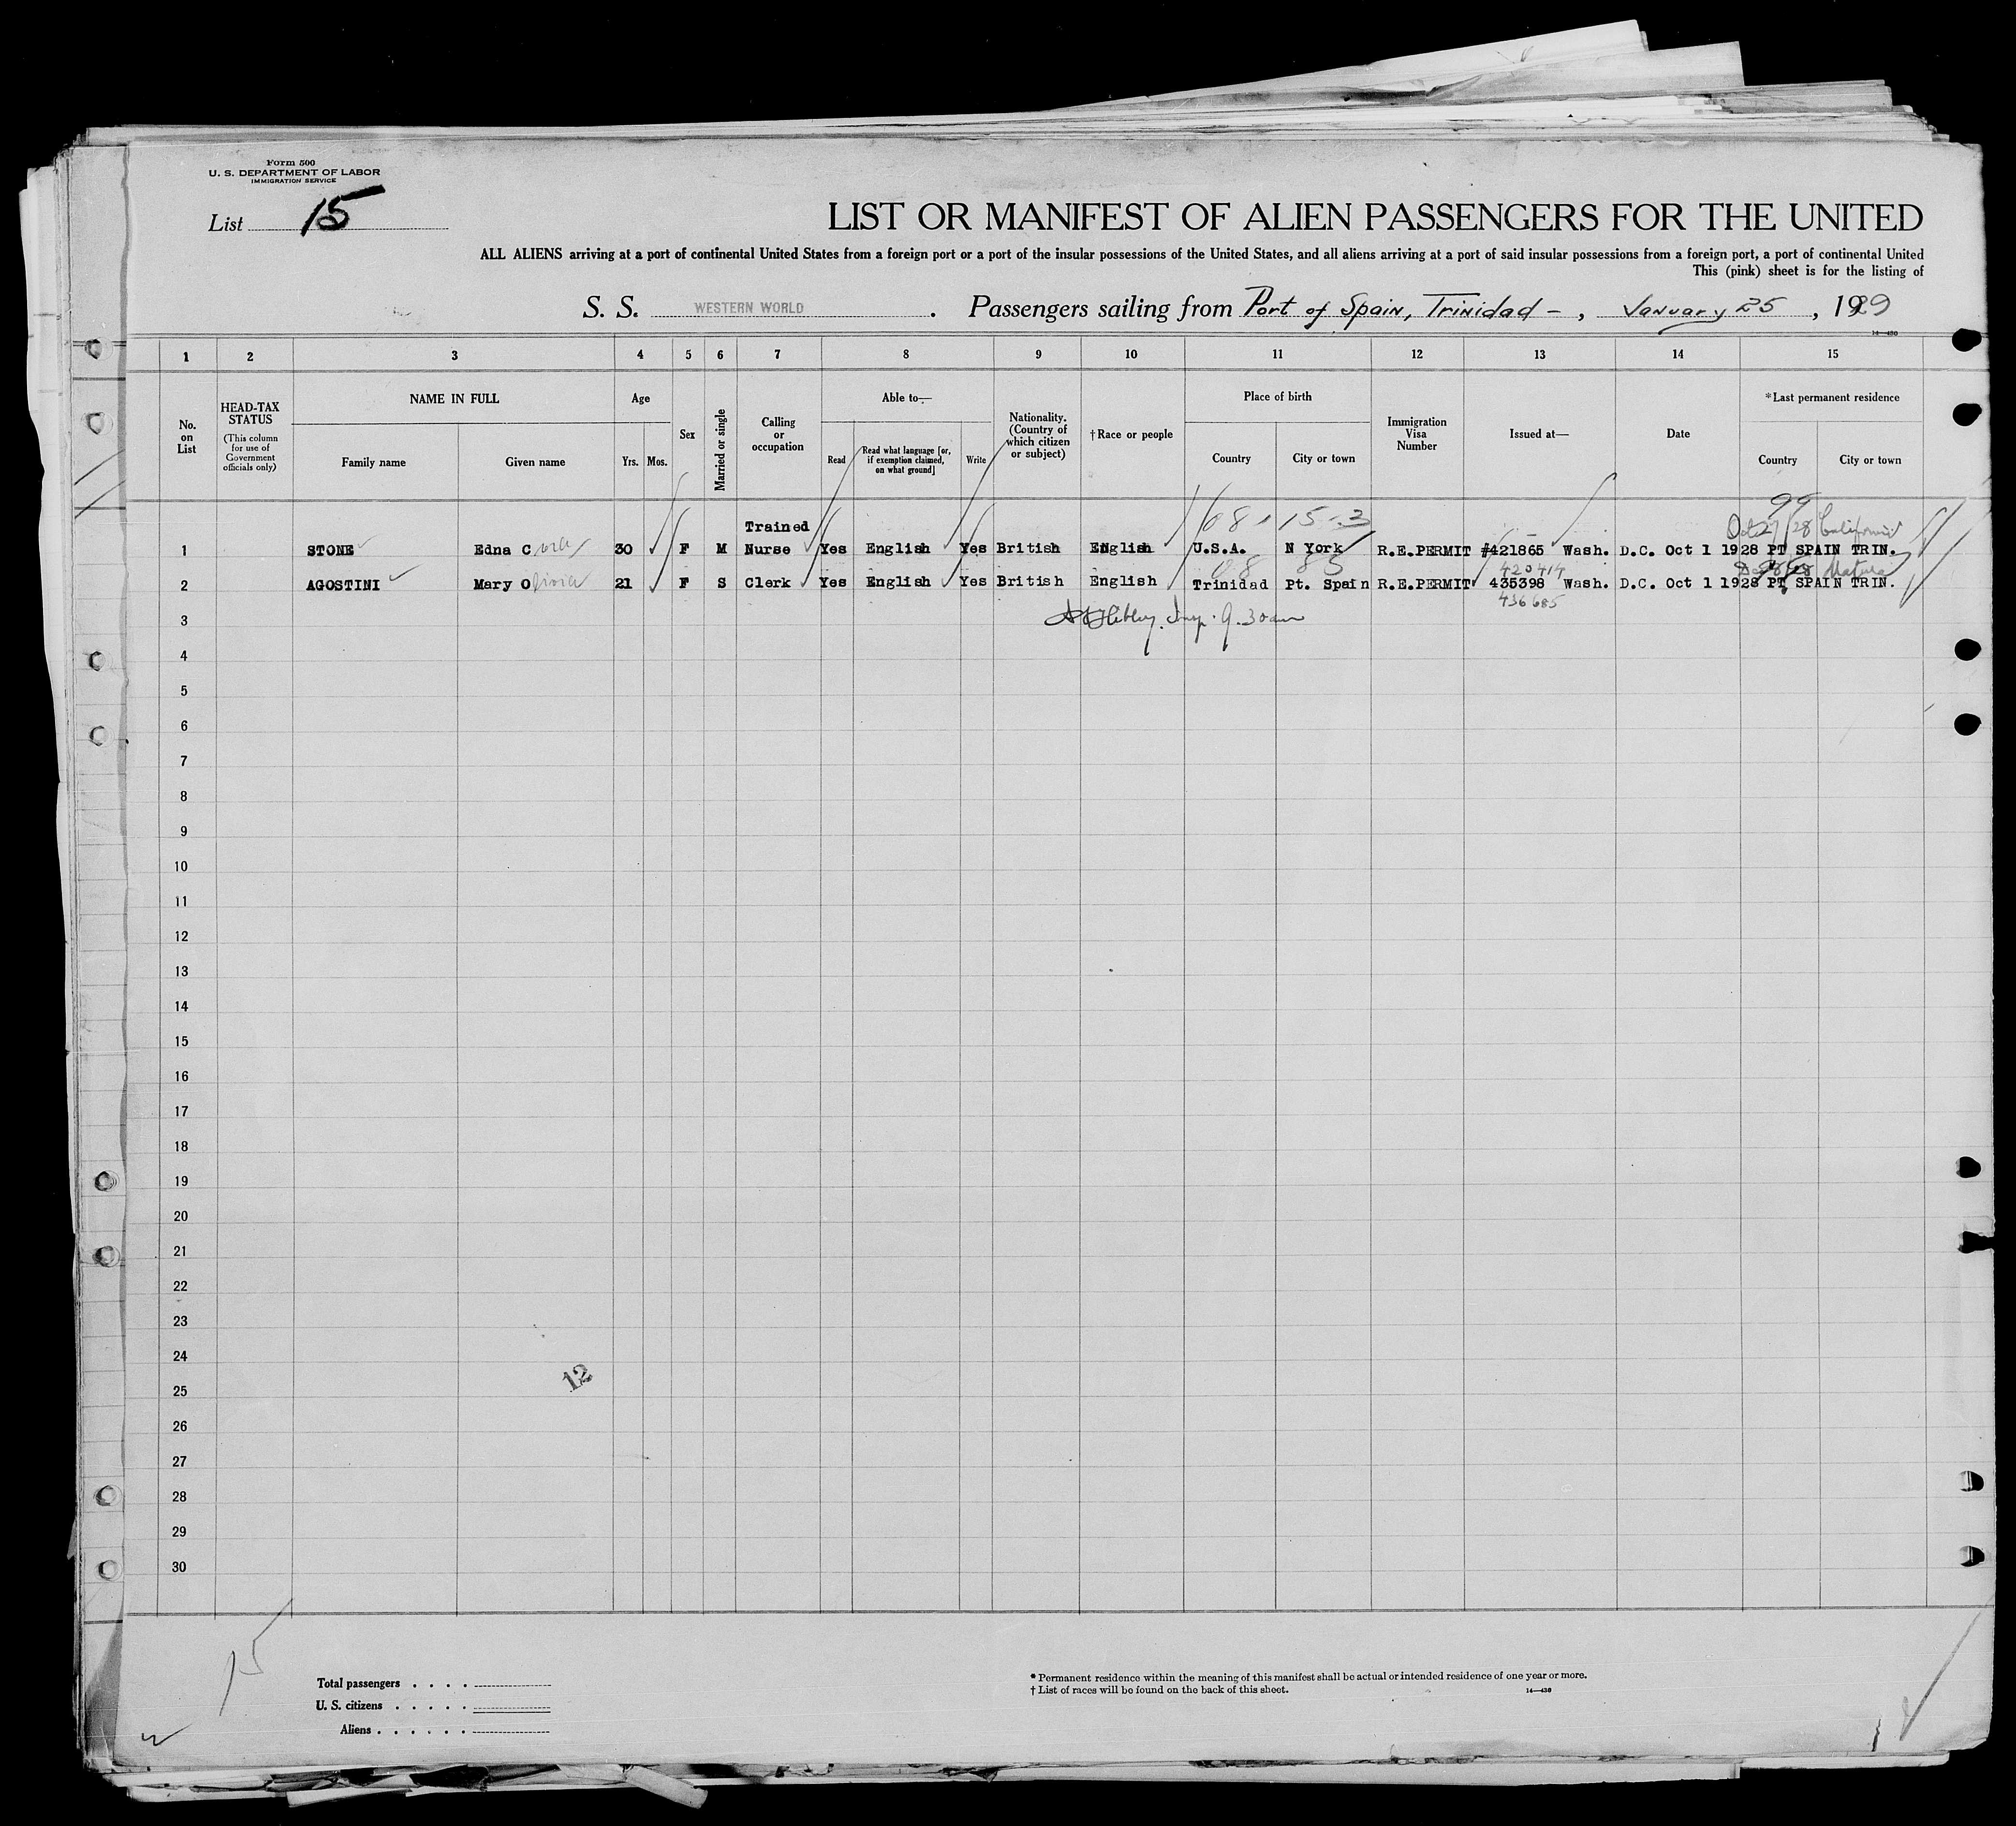 Form 500
U. S. DEPARTMENT OF LABOR
IMMIGRATION SERVICE
List 15
LIST OR MANIFEST OF ALIEN PASSENGERS FOR THE UNITED
ALL ALIENS arriving at a port of continental United States from a foreign port or a port of the insular possessions of the United States, and all aliens arriving at a port of said insular possessions from a foreign port, a port of continental United
This (pink) sheet is for the listing of
S. S. WESTERN WORLD. Passengers sailing from Port of Spain, Trinidad –, January 25, 1929
14—430
1 2 3 4 5 6 7 8 9 10 11 12 13 14 15
No. on List
HEAD-TAX STATUS
(This column for use of Government officials only)
NAME IN FULL
Family name Given name
Age
Yrs. Mos.
Sex
Married or single
Calling or occupation
Able to—
Read
Read what language [or, if exemption claimed, on what ground]
Write
Nationality. (Country of which citizen or subject)
†Race or people
Place of birth
Country City or town
Immigration Visa Number
Issued at—
Date
*Last permanent residence
Country City or town
99
68, 15-3
Trained
1 STONE Edna Cora 30 F M Nurse Yes English Yes British English U.S.A. N York R.E.PERMIT #421865 Wash. D.C. Oct 1 1928 PT SPAIN TRIN.
85
420414
2 AGOSTINI Mary Olivia 21 F S Clerk Yes English Yes British English Trinidad Pt. Spain R.E.PERMIT 435398 Wash. D.C. Oct 1 1928 PT SPAIN TRIN.
436685
3 Insp. 9.30am
4
5
6
7
8
9
10
11
12
13
14
15
16
17
18
19
20
21
22
23
24
12
25
26
27
28
29
30
15
Total passengers . . . .
U. S. citizens . . . . .
Aliens . . . . . .
* Permanent residence within the meaning of this manifest shall be actual or intended residence of one year or more.
† List of races will be found on the back of this sheet.
14—430